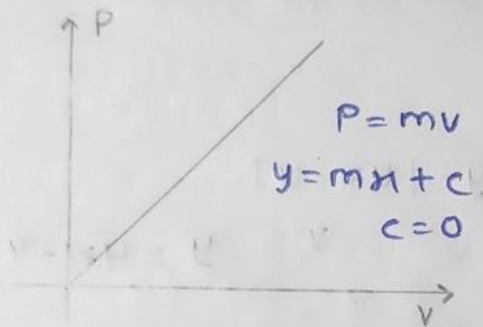 P
P = mv
y = mx + c
c = 0
V